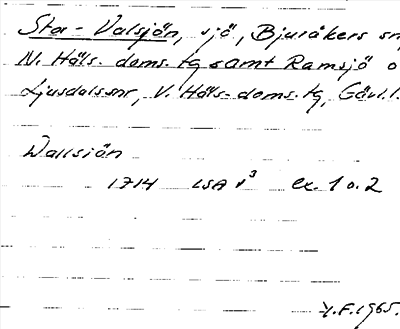 Stor-Valsjön, sjö, Bjuråkers sn,
N. Häls. doms. tg samt Ramsjö o
Ljusdals snr, V. Häls. doms. tg, Gävl. l.
Wallsiön
1714 LSA v³ ex. 1 o. 2
Y.F. 1965.